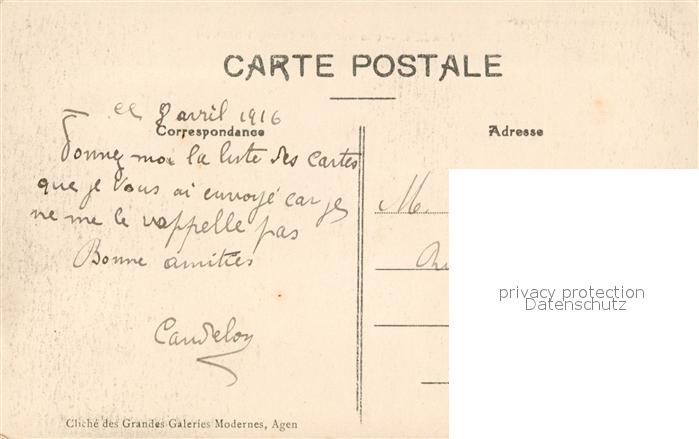 CARTE POSTALE
le 8 avril 1916
Correspondance
Adresse
Donnez moi la liste des cartes
que je vous ai envoyé car je
ne me le rappelle pas
Bonne amitiés
M.
privacy protection
Datenschutz
Cliché des Grandes Galeries Modernes, Agen